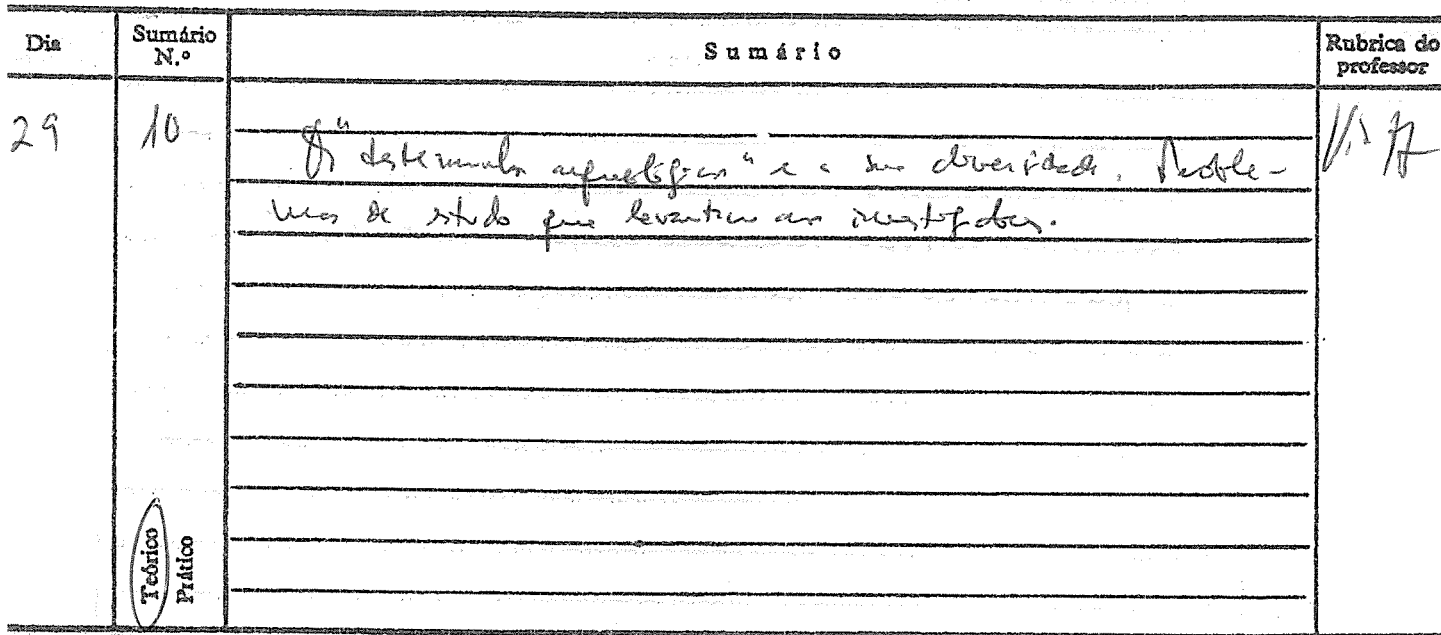 Dia
Sumário N.º
Sumário
Rubrica do professor
29
10
Os "testemunhos arqueológicos" e a sua diversidade. Proble-
mas de estudo que levantam aos investigadores.
Teórico
Prático